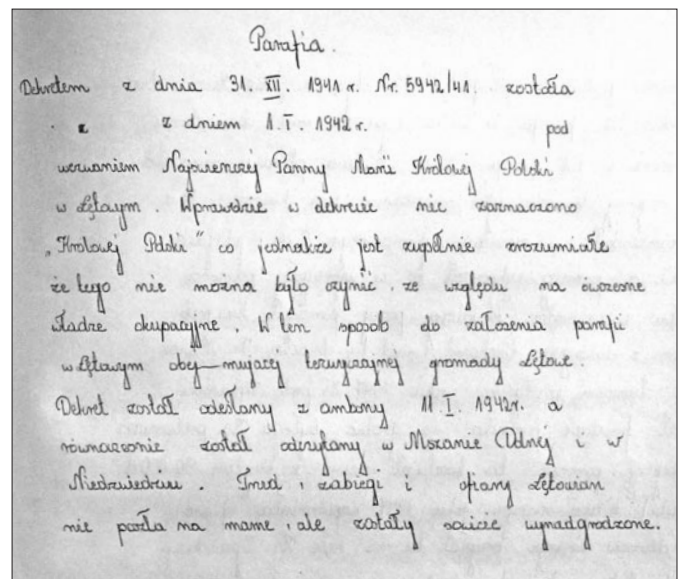 Parafia.
Dekretem z dnia 31. XII. 1941 r. Nr. 5942/41. została
z z dniem 1. I. 1942 r. pod
wezwaniem Najświenczej Panny Marii Królowej Polski
w Łętowym. Wprawdzie w dekrecie nie zaznaczono
„Królowej Polski" co jednakże jest zupełnie zrozumiałe
że tego nie można było czynić ze względu na ówczesne
władze okupacyjne. W ten sposób do założenia parafii
w Łętowym obejmującej terwizajnej gromady Łętowe.
Dekret został odesłany z ambony 11. I. 1942 r. a
równocześnie został odczytany w Mszanie Dolnej i w
Niedźwiedziu. Trud, zabiegi i ofiary Łętowian
nie poszła na marne, ale zostały sowicie wynadgrodzone.